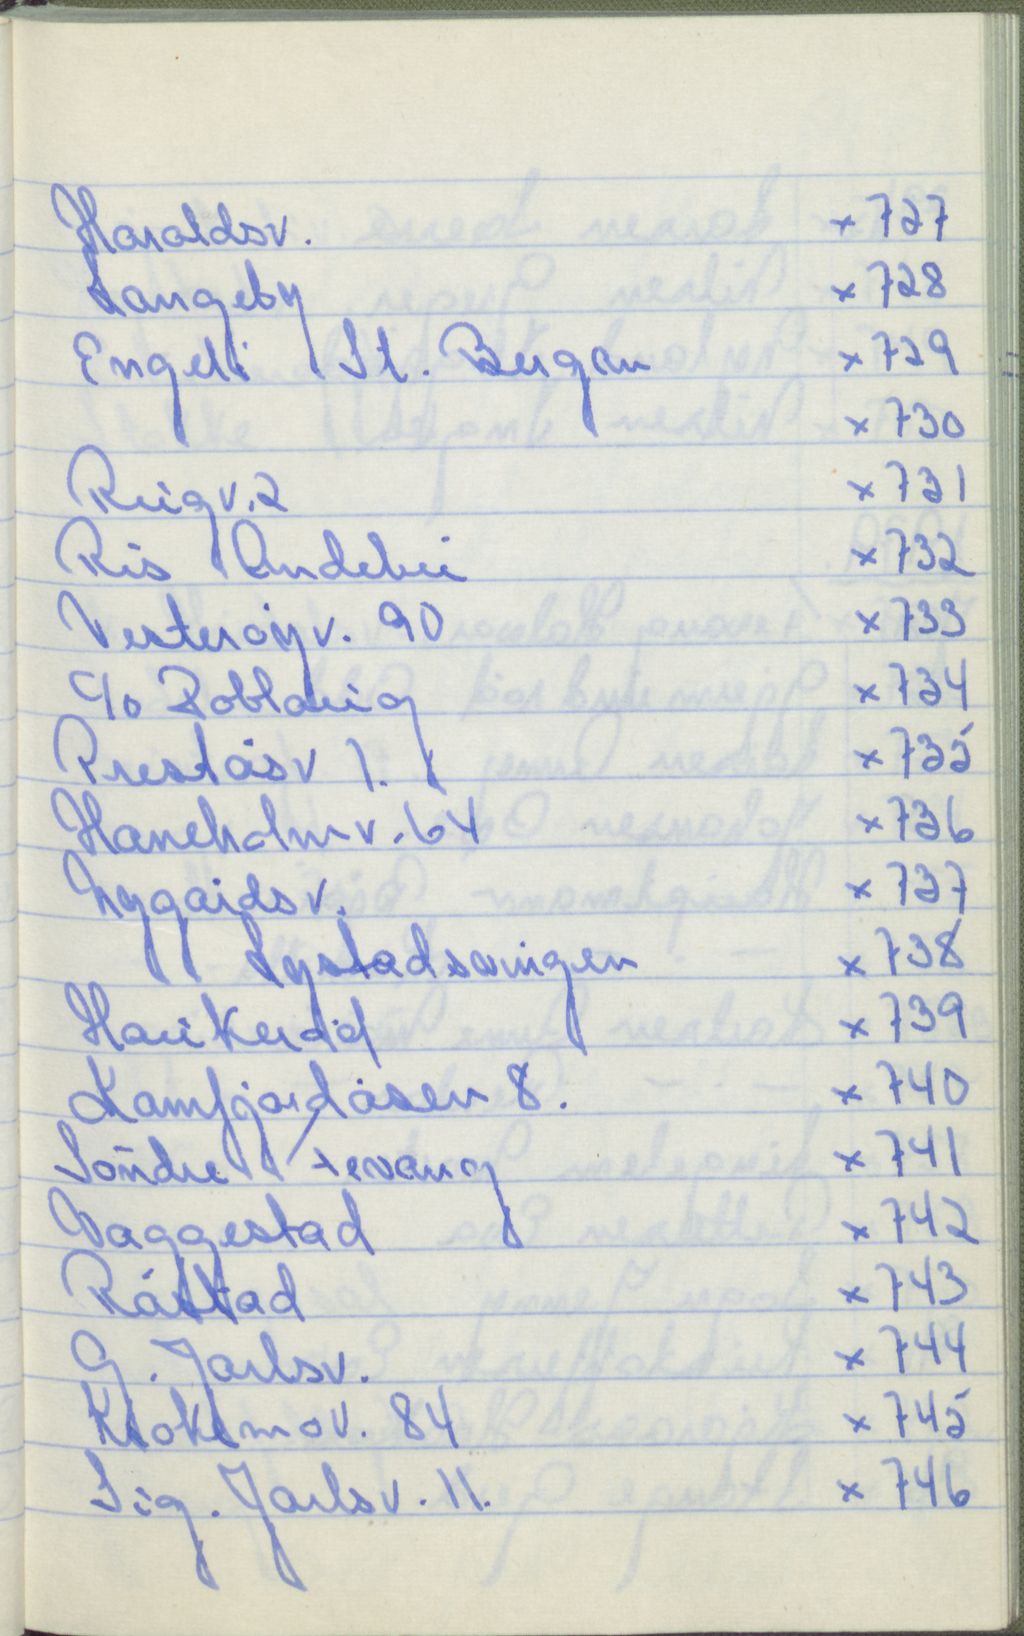 Haroldsv. x 727
Langeby x 728
Engeli St. Bergan x 729
x 730
Reigv. 2 x 731
Ris Andebu x 732
Vesterøyv. 90 x 733
C/o x 734
Preståsv 1. x 735
Haneholmv. 64 x 736
Nygårdsv. x 737
Lystadsvingen x 738
x 739
Kamfjordåsen 8. x 740
Söndre Tevang x 741
Vaggestad x 742
Råstad x 743
G. Jarlsv. x 744
Krokemov. 84 x 745
Sig. Jarlsv. 11. x 746